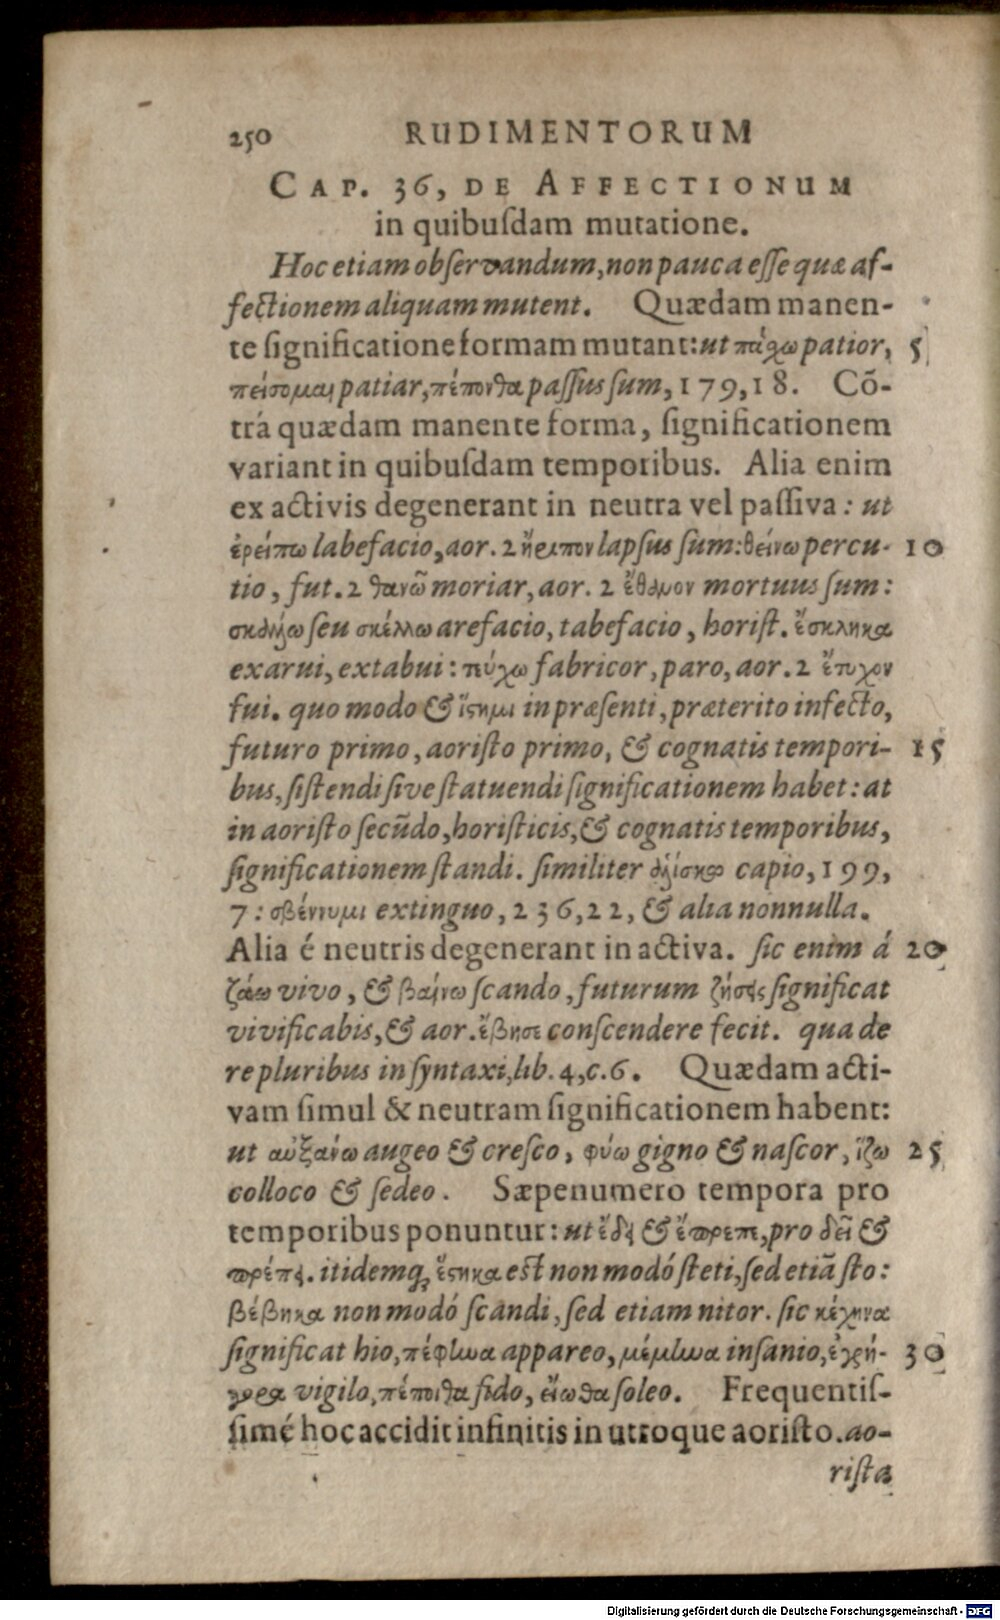 250 RUDIMENTORUM
CAP. 36, DE AFFECTIONUM
in quibuſdam mutatione.
Hoc etiam obſervandum, non pauca eſſe quæ af-
fectionem aliquam mutent. Quædam manen-
te ſignificatione formam mutant: ut πάχω patior, 5
πείσομαι patiar, πέπονθα paſſus ſum, 179, 18. Cõ-
trá quædam manente forma, ſignificationem
variant in quibuſdam temporibus. Alia enim
ex activis degenerant in neutra vel paſſiva: ut
ἐρείπω labefacio, aor. 2 ἤριπον lapſus ſum: θείνω percu- 10
tio, fut. 2 θανῶ moriar, aor. 2 ἔθανον mortuus ſum:
seu σκέλλω arefacio, tabefacio, horiſt. ἔσκληκα
exarui, extabui: τεύχω fabricor, paro, aor. 2 ἔτυχον
fui. quo modo & ἵστημι in præſenti, præterito infecto,
futuro primo, aoriſto primo, & cognatis tempori- 15
bus, ſiſtendi ſive ſtatuendi ſignificationem habet: at
in aoriſto ſecũdo, horiſticis, & cognatis temporibus,
ſignificationem ſtandi. ſimiliter capio, 199,
7: σβέννυμι extinguo, 236, 22, & alia nonnulla.
Alia é neutris degenerant in activa. ſic enim á 20
ζάω vivo, & βαίνω ſcando, futurum ζήσεις ſignificat
vivificabis, & aor. ἔβησε conſcendere fecit. qua de
re pluribus in ſyntaxi, lib. 4, c. 6. Quædam acti-
vam ſimul & neutram ſignificationem habent:
ut αὐξάνω augeo & creſco, φύω gigno & naſcor, ἵζω 25
colloco & ſedeo. Sæpenumero tempora pro
temporibus ponuntur: ut ἔδει & ἔπρεπε, pro δεῖ &
πρέπει. itidemq; ἕστηκα est non modó ſteti, ſed etiã ſto:
βέβηκα non modó ſcandi, ſed etiam nitor. ſic κέχηνα
ſignificat hio, πέφηνα appareo, μέμηνα inſanio, ἐγρή- 30
γορα vigilo, πέποιθα fido, εἴωθα ſoleo. Frequentiſ-
ſimé hoc accidit infinitis in utroque aoriſto. ao-
riſta
Digitalisierung gefördert durch die Deutsche Forschungsgemeinschaft - DFG